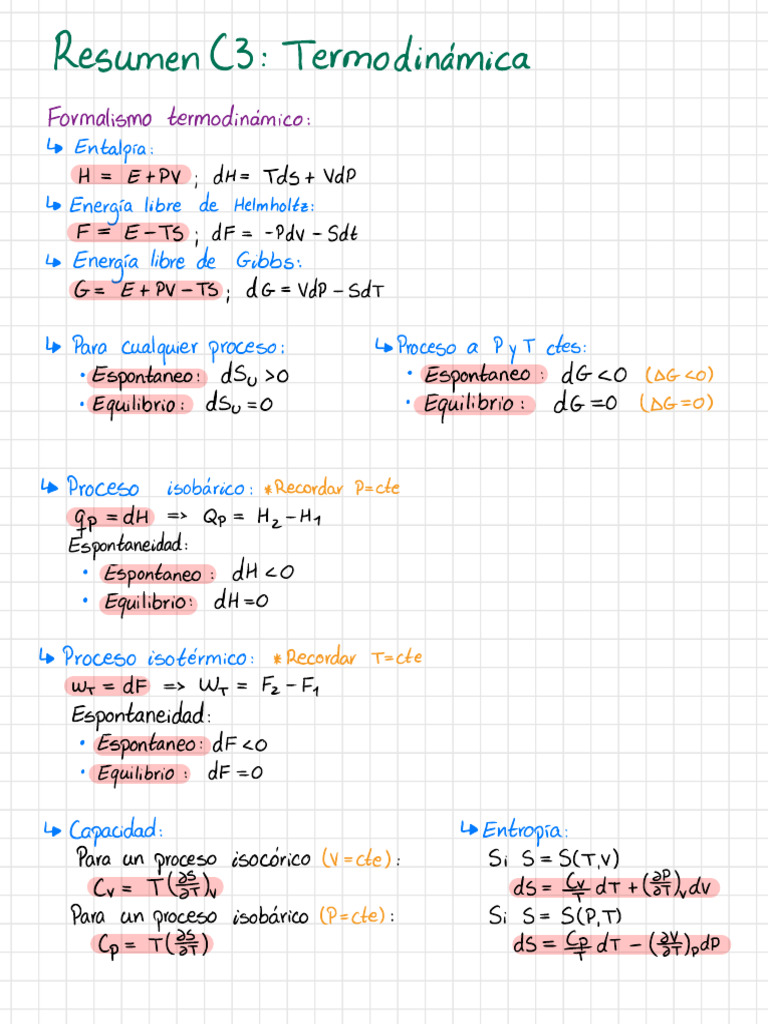 Resumen C3: Termodinámica
Formalismo termodinámico:
↳ Entalpía:
H = E+PV ; dH = TdS + VdP
↳ Energía libre de Helmholtz:
F = E-TS ; dF = -Pdv - Sdt
↳ Energía libre de Gibbs:
G = E + PV - TS ; dG = VdP - SdT
↳ Para cualquier proceso:
• Espontaneo: dSᵤ >0
• Equilibrio: dSᵤ =0
↳ Proceso a P y T ctes:
• Espontaneo: dG <0 (ΔG <0)
• Equilibrio: dG =0 (ΔG =0)
↳ Proceso isobárico: *Recordar P=cte
qp = dH => Qp = H₂-H₁
Espontaneidad:
• Espontaneo: dH <0
• Equilibrio: dH =0
↳ Proceso isotérmico: *Recordar T=cte
w_T = dF => W_T = F₂-F₁
Espontaneidad:
• Espontaneo: dF <0
• Equilibrio: dF =0
↳ Capacidad:
Para un proceso isocórico (V=cte):
Cv = T(∂S/∂T)v
Para un proceso isobárico (P=cte):
Cp = T(∂S/∂T)
↳ Entropía:
Si S = S(T,V)
dS = Cv/T dT + (∂P/∂T)v dv
Si S = S(P,T)
dS = Cp/T dT - (∂V/∂T)p dp